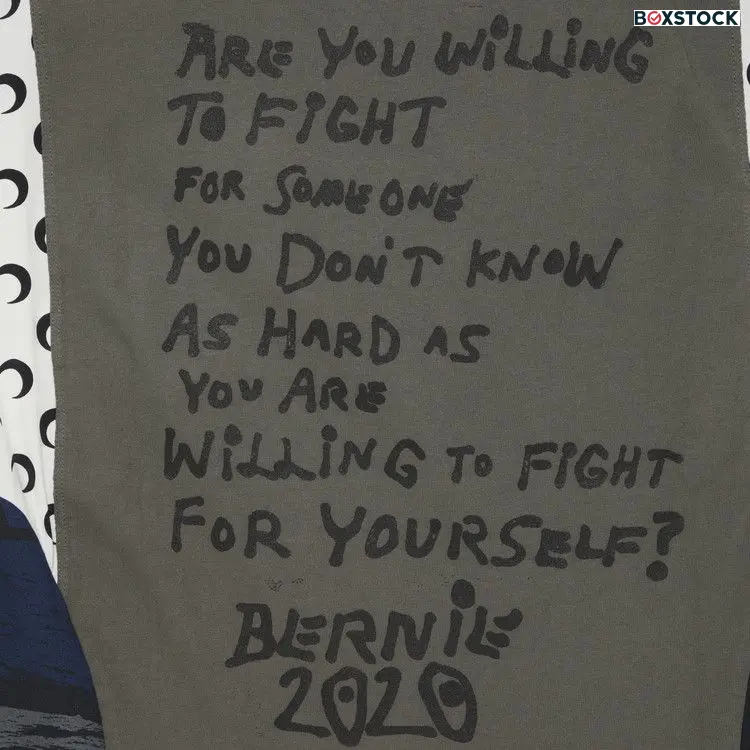 BOXSTOCK
ARE YOU WiLLiNG
TO FiGHT
FOR SOMEONE
YOU DON'T KNOW
AS HARD AS
YOU ARE
WiLLiNG TO FiGHT
FOR YOURSELF?
BERNiE
2020